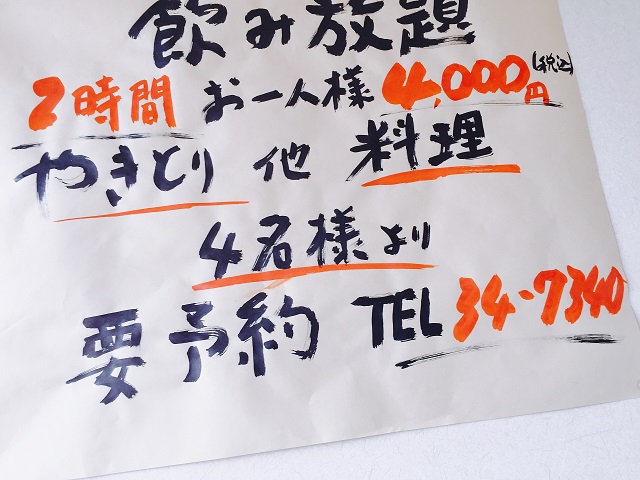 飲み放題
2時間 お一人様 4,000円(税込)
やきとり 他 料理
4名様より
要予約 TEL 34-7340